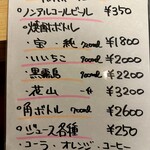 ◎ノンアルコールビール ¥350
◎焼酎ボトル
・宝・純 700ml ¥1800
・いいちこ 700ml ¥2000
・黒霧島 700ml ¥2200
・花山 一升 ¥3200
◎角ボトル 700ml ¥2600
◎ジュース各種 ¥250
・コーラ・オレンジ・コーヒー